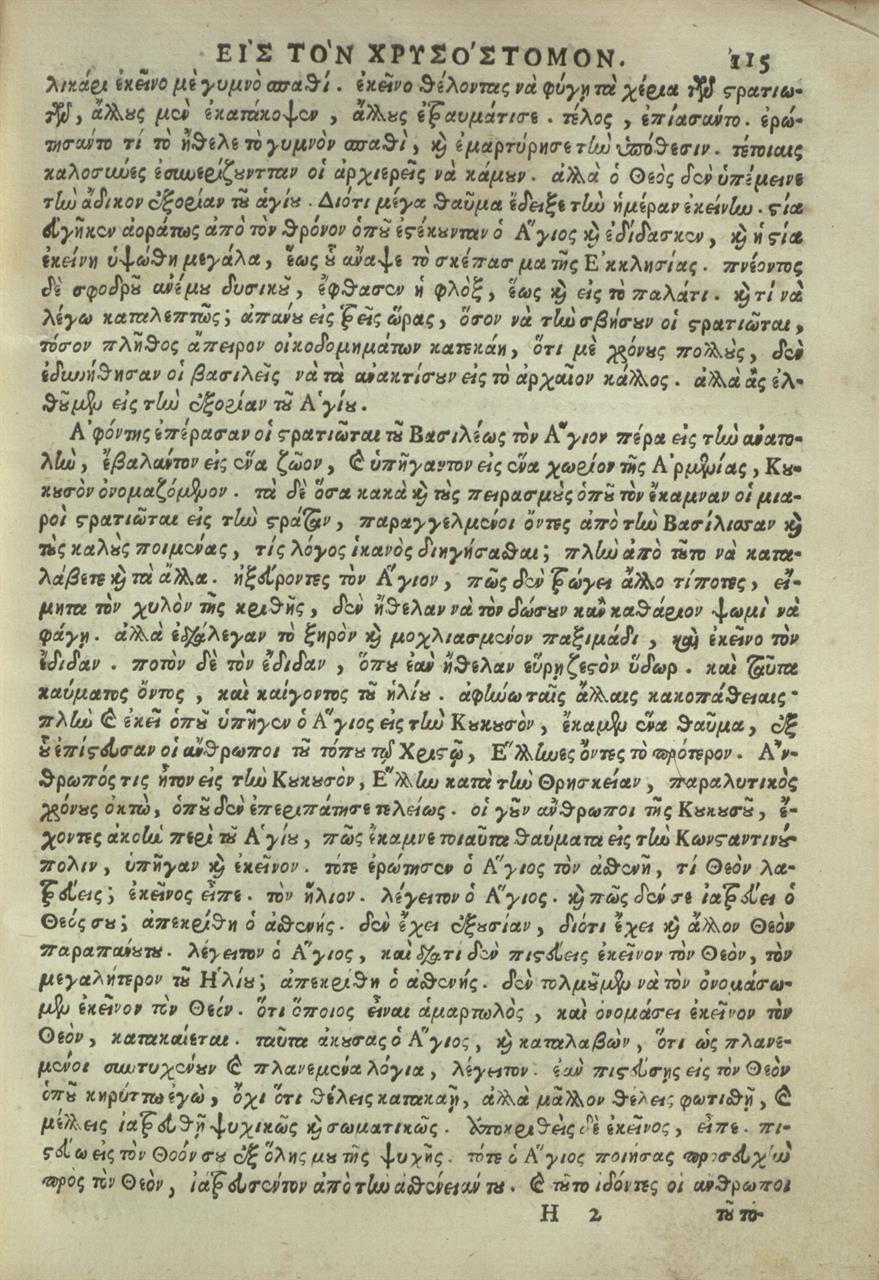 ΕΙ᾿Σ ΤΟ`Ν ΧΡΥΣΟ´ΣΤΟΜΟΝ. 115
λικάρι ἐκεῖνο μὲ γυμνὸ σπαθί. ἐκεῖνο θέλοντας νὰ φύγῃ τὰ χέρια τῶν στρατιω-
τῶν, ἄλλους μὲν ἐκατάκοψεν, ἄλλους ἐτραυμάτισε. τέλος, ἐπίασάντο. ἐρώ-
τησάντο τί τὸ ἤθελε τὸ γυμνὸν σπαθὶ, καὶ ἐμαρτύρησε τὴν ὑπόθεσιν. τέτοιαις
καλοσύνες ἐσυνερίζουνταν οἱ ἀρχιερεῖς νὰ κάμουν. ἀλλὰ ὁ Θεὸς δὲν ὑπέμεινε
τὴν ἄδικον ἐξορίαν τοῦ ἁγίου. Διότι μέγα θαῦμα ἔδειξε τὴν ἡμέραν ἐκείνην. στία
εὐγῆκεν ἀοράτως ἀπὸ τὸν θρόνον ὁποῦ ἐστέκουνταν ὁ Ἅγιος καὶ ἐδίδασκεν, καὶ ἡ στία
ἐκείνη ὑψώθη μεγάλα, ἕως οὗ ἄναψε τὸ σκέπασμα τῆς Ἐκκλησίας. πνέοντος
δὲ σφοδροῦ ἀνέμου δυσικοῦ, ἔφθασεν ἡ φλὸξ, ἕως καὶ εἰς τὸ παλάτι. καὶ τί νὰ
λέγω καταλεπτῶς; ἀπάνου εἰς τρεῖς ὥρας, ὅσον νὰ τὴν σβήσουν οἱ στρατιῶται,
τόσον πλῆθος ἄπειρον οἰκοδομημάτων κατεκάη, ὅτι μὲ χρόνους πολλοὺς, δὲν
ἐδυνήθησαν οἱ βασιλεῖς νὰ τὰ ἀνακτίσουν εἰς τὸ ἀρχαῖον κάλλος. ἀλλὰ ἂς ἐλ-
θοῦμεν εἰς τὴν ἐξορίαν τοῦ Ἁγίου.
Ἀφόντης ἐπέρασαν οἱ στρατιῶται τοῦ Βασιλέως τὸν Ἅγιον πέρα εἰς τὴν ἀνατο-
λὴν, ἔβαλαντον εἰς ἕνα ζῶον, καὶ ὑπῆγαντον εἰς ἕνα χωρίον τῆς Ἀρμενίας, Κου-
κουσὸν ὀνομαζόμενον. τὰ δὲ ὅσα κακὰ καὶ τοὺς πειρασμοὺς ὁποῦ τὸν ἔκαμναν οἱ μια-
ροὶ στρατιῶται εἰς τὴν στράταν, παραγγελμένοι ὄντες ἀπὸ τὴν Βασίλισσαν καὶ
τοὺς καλοὺς ποιμένας, τίς λόγος ἱκανὸς διηγήσασθαι; πλὴν ἀπὸ τοῦτο νὰ κατα-
λάβετε καὶ τὰ ἄλλα. ἠξεύροντες τὸν Ἅγιον, πῶς δὲν τρώγει ἄλλο τίποτες, εἴ-
μητα τὸν χυλὸν τῆς κριθῆς, δὲν ἤθελαν νὰ τὸν δώσουν κᾂν καθάριον ψωμὶ νὰ
φάγῃ. ἀλλὰ ἐδιάλεγαν τὸ ξηρὸν καὶ μοχλιασμένον παξιμάδι, καὶ ἐκεῖνο τὸν
ἔδιδαν. ποτὸν δὲ τὸν ἔδιδαν, ὅπου ἐὰν ἤθελαν εὕρῃ ζεστὸν ὕδωρ. καὶ ταῦτα
καύματος ὄντος, καὶ καίγοντος τοῦ ἡλίου. ἀφίνω ταῖς ἄλλαις κακοπάθειαις·
πλὴν καὶ ἐκεῖ ὁποῦ ὑπῆγεν ὁ Ἅγιος εἰς τὴν Κουκουσὸν, ἔκαμεν ἕνα θαῦμα, ἐξ
οὗ ἐπίστευσαν οἱ ἄνθρωποι τοῦ τόπου τῷ Χριστῷ, Ἕλληνες ὄντες τὸ πρότερον. Ἄν-
θρωπός τις ἦτον εἰς τὴν Κουκουσὸν, Ἕλλην κατὰ τὴν Θρησκείαν, παραλυτικὸς
χρόνους ὀκτὼ, ὁποῦ δὲν ἐπεριπάτησε τελείως. οἱ γοῦν ἄνθρωποι τῆς Κουκουσοῦ, ἔ-
χοντες ἀκοὴν περὶ τοῦ Ἁγίου, πῶς ἔκαμνε τοιαῦτα θαύματα εἰς τὴν Κωνσταντινού-
πολιν, ὑπῆγαν καὶ ἐκεῖνον. τότε ἐρώτησεν ὁ Ἅγιος τὸν ἀσθενῆ, τί Θεὸν λα-
τρεύεις; ἐκεῖνος εἶπε. τὸν ἥλιον. λέγειτον ὁ Ἅγιος. καὶ πῶς δέν σε ἰατρεύει ὁ
Θεός σου; ἀπεκρίθη ὁ ἀσθενής. δὲν ἔχει ἐξουσίαν, διότι ἔχει καὶ ἄλλον Θεὸν
παραπάνουτου. λέγειτον ὁ Ἅγιος, καὶ διατι δὲν πιστεύεις ἐκεῖνον τὸν Θεὸν, τὸν
μεγαλήτερον τοῦ Ἡλίου; ἀπεκρίθη ὁ ἀσθενής. δὲν τολμοῦμεν νὰ τὸν ὀνομάσω-
μεν ἐκεῖνον τὸν Θεόν. ὅτι ὅποιος εἶναι ἁμαρτωλὸς, καὶ ὀνομάσει ἐκεῖνον τὸν
Θεὸν, κατακαίεται. ταῦτα ἀκούσας ὁ Ἅγιος, καὶ καταλαβὼν, ὅτι ὡς πλανε-
μένοι συντυχένουν καὶ πλανεμένα λόγια, λέγειτον. ἐὰν πιστεύσῃς εἰς τὸν Θεὸν
ὁποῦ κηρύττω ἐγὼ, ὄχι ὅτι θέλεις κατακαῇ, ἀλλὰ μᾶλλον θέλεις φωτιθῇ, καὶ
μέλλεις ἰατρευθῇ ψυχικῶς καὶ σωματικῶς. Ἀποκριθεὶς δὲ ἐκεῖνος, εἶπε. πι-
στεύω εἰς τὸν Θοόν σου ἐξ ὅλης μου τῆς ψυχῆς. τότε ὁ Ἅγιος ποιήσας προσευχὴν
πρὸς τὸν Θεὸν, ἰάτρευσέντον ἀπὸ τὴν ἀσθένειάν του. καὶ τοῦτο ἰδόντες οἱ ἄνθρωποι
Η 2 τοῦ το-